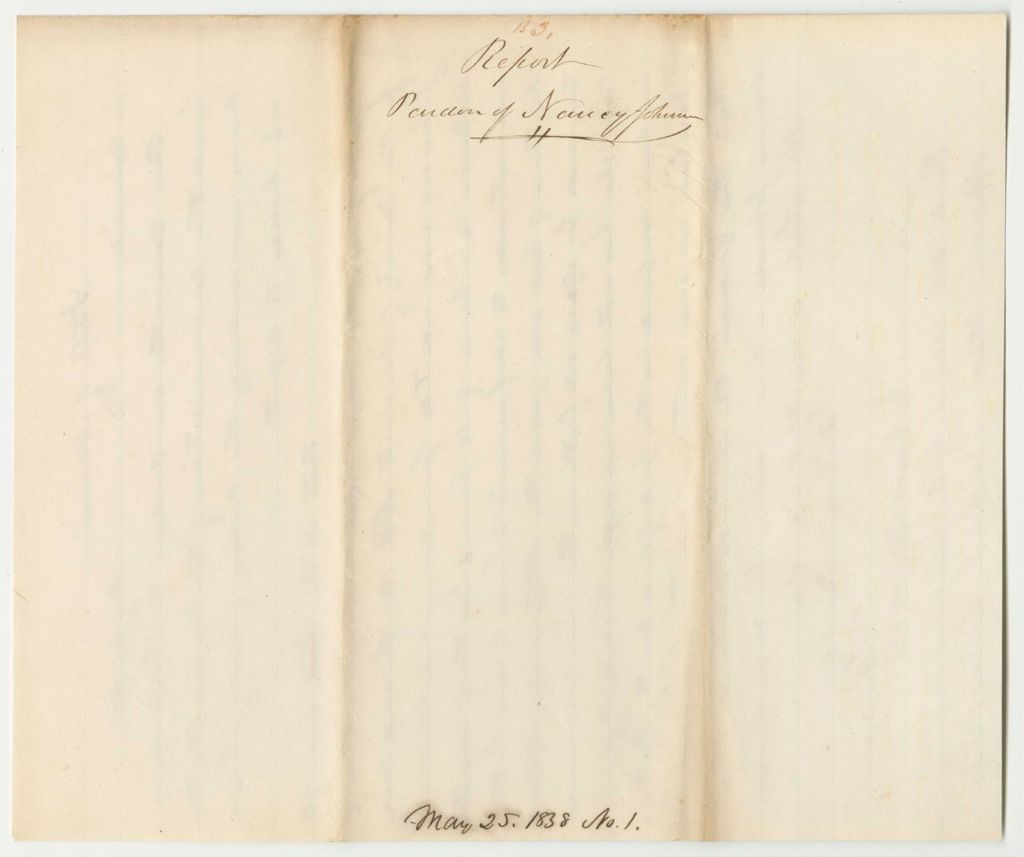 153.
Report
Pardon of Nancy Johnson
May 25. 1838 No. 1.